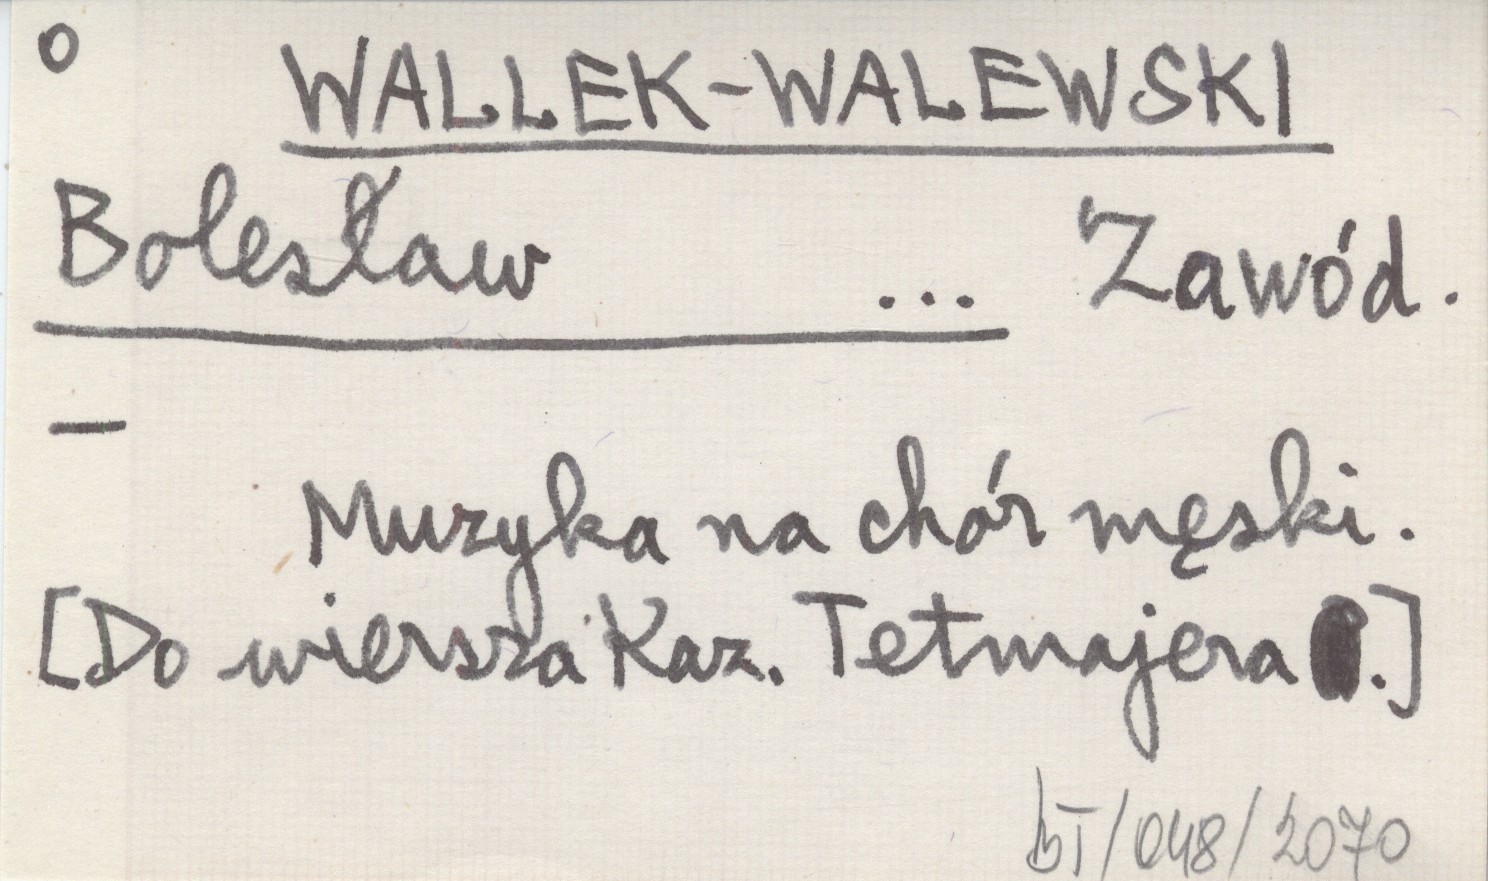 o
WALLEK-WALEWSKI
Bolesław ... Zawód.
—
Muzyka na chór męski.
[Do wiersza Kaz. Tetmajera .]
bT/048/2070